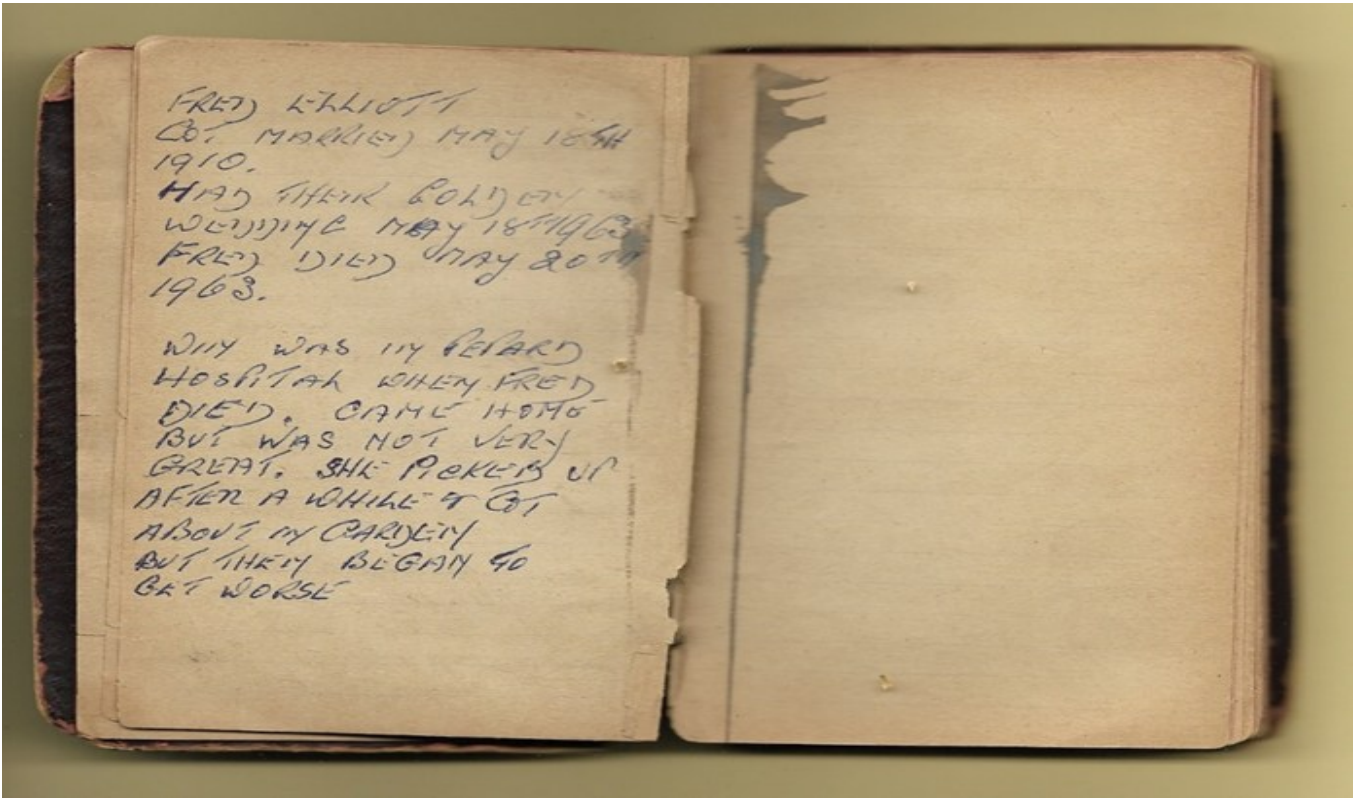 FRED ELLIOTT
GOT MARRIED MAY 18TH
1910.
HAD THEIR GOLDEN
WEDDING MAY 18TH 1963
FRED DIED MAY 20TH
1963.
WIN WAS IN PEPARD
HOSPITAL WHEN FRED
DIED. CAME HOME
BUT WAS NOT VERY
GREAT. SHE PICKED UP
AFTER A WHILE & GOT
ABOUT IN GARDEN
BUT THEN BEGAN TO
GET WORSE